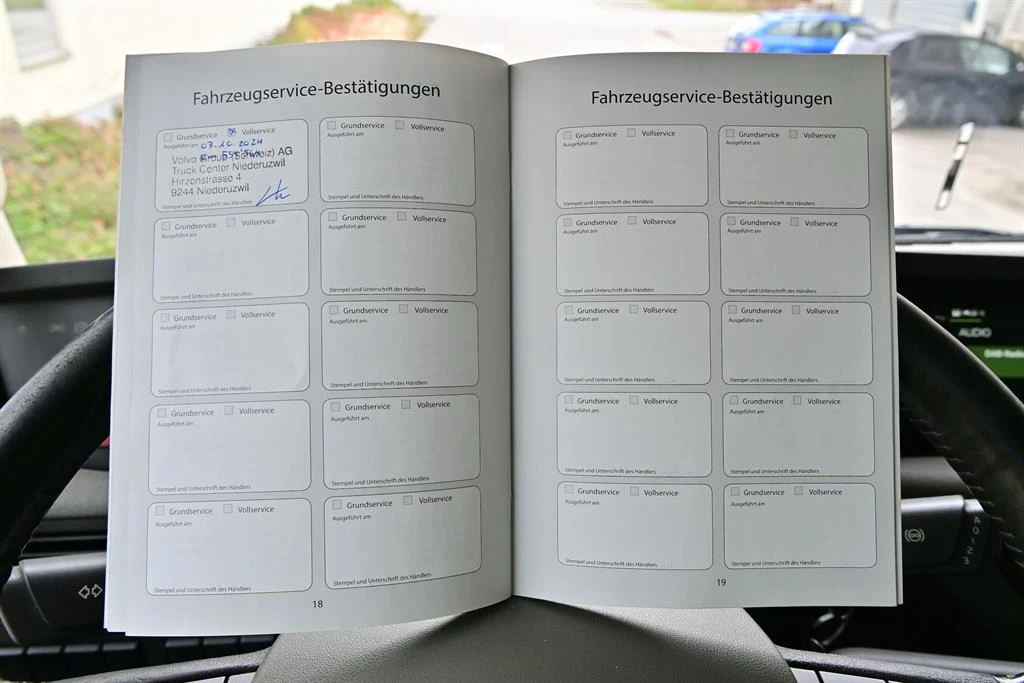 Fahrzeugservice-Bestätigungen
Grundservice Vollservice
Ausgeführt am 07.10.2024
Volvo Group (Schweiz) AG
Truck Center Niederuzwil
Hirzenstrasse 4
9244 Niederuzwil
Stempel und Unterschrift des Händlers
Grundservice Vollservice
Ausgeführt am
Stempel und Unterschrift des Händlers
Grundservice Vollservice
Ausgeführt am
Stempel und Unterschrift des Händlers
Grundservice Vollservice
Ausgeführt am
Stempel und Unterschrift des Händlers
Grundservice Vollservice
Ausgeführt am
Stempel und Unterschrift des Händlers
Grundservice Vollservice
Ausgeführt am
Stempel und Unterschrift des Händlers
Grundservice Vollservice
Ausgeführt am
Stempel und Unterschrift des Händlers
Grundservice Vollservice
Ausgeführt am
Stempel und Unterschrift des Händlers
Grundservice Vollservice
Ausgeführt am
Stempel und Unterschrift des Händlers
Grundservice Vollservice
Ausgeführt am
Stempel und Unterschrift des Händlers
18
Fahrzeugservice-Bestätigungen
Grundservice Vollservice
Ausgeführt am
Stempel und Unterschrift des Händlers
Grundservice Vollservice
Ausgeführt am
Stempel und Unterschrift des Händlers
Grundservice Vollservice
Ausgeführt am
Stempel und Unterschrift des Händlers
Grundservice Vollservice
Ausgeführt am
Stempel und Unterschrift des Händlers
Grundservice Vollservice
Ausgeführt am
Stempel und Unterschrift des Händlers
Grundservice Vollservice
Ausgeführt am
Stempel und Unterschrift des Händlers
Grundservice Vollservice
Ausgeführt am
Stempel und Unterschrift des Händlers
Grundservice Vollservice
Ausgeführt am
Stempel und Unterschrift des Händlers
Grundservice Vollservice
Ausgeführt am
Stempel und Unterschrift des Händlers
Grundservice Vollservice
Ausgeführt am
Stempel und Unterschrift des Händlers
19
AUDIO
DAB Radio
A
0
1
2
3